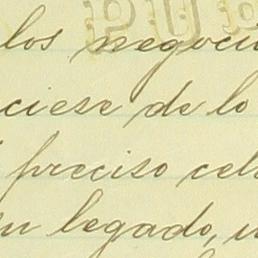 los negoci
ciese de lo
preciso cel
un legado, u